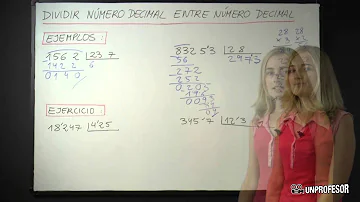 DIVIDIR NÚMERO DECIMAL ENTRE NÚMERO DECIMAL
EJEMPLOS:
156 2 |23 7
142 2 6
014 0
8325'3 |2 8
56 2973
272
252
0205
196
0093
EJERCICIO:
18'247 |4'25
345'7 |12'3
UNPROFESOR